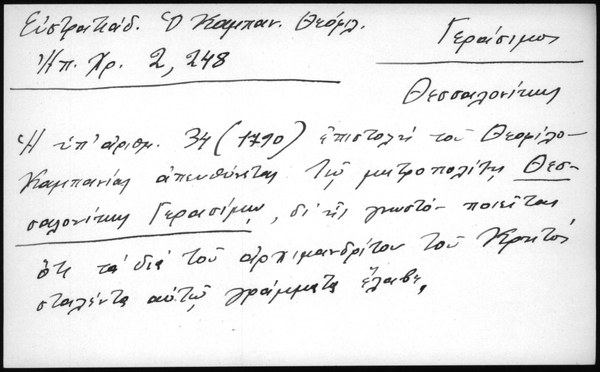 Εὐστρατιάδ. Ὁ Καμπαν. Θεόφιλ.
Ἠπ. Χρ. 2, 248
Γεράσιμος
Θεσσαλονίκης
Ἡ ὑπ' ἀριθμ. 34 (1790) ἐπιστολὴ τοῦ Θεοφίλου
Καμπανίας ἀπευθύνεται τῷ μητροπολίτῃ Θεσ-
σαλονίκης Γερασίμῳ, δι' ἧς γνωστὸν ποιεῖται
ὅτι τὰ διὰ τοῦ ἀρχιμανδρίτου τοῦ Κρητὸς
σταλέντα αὐτῷ γράμματα ἔλαβε.